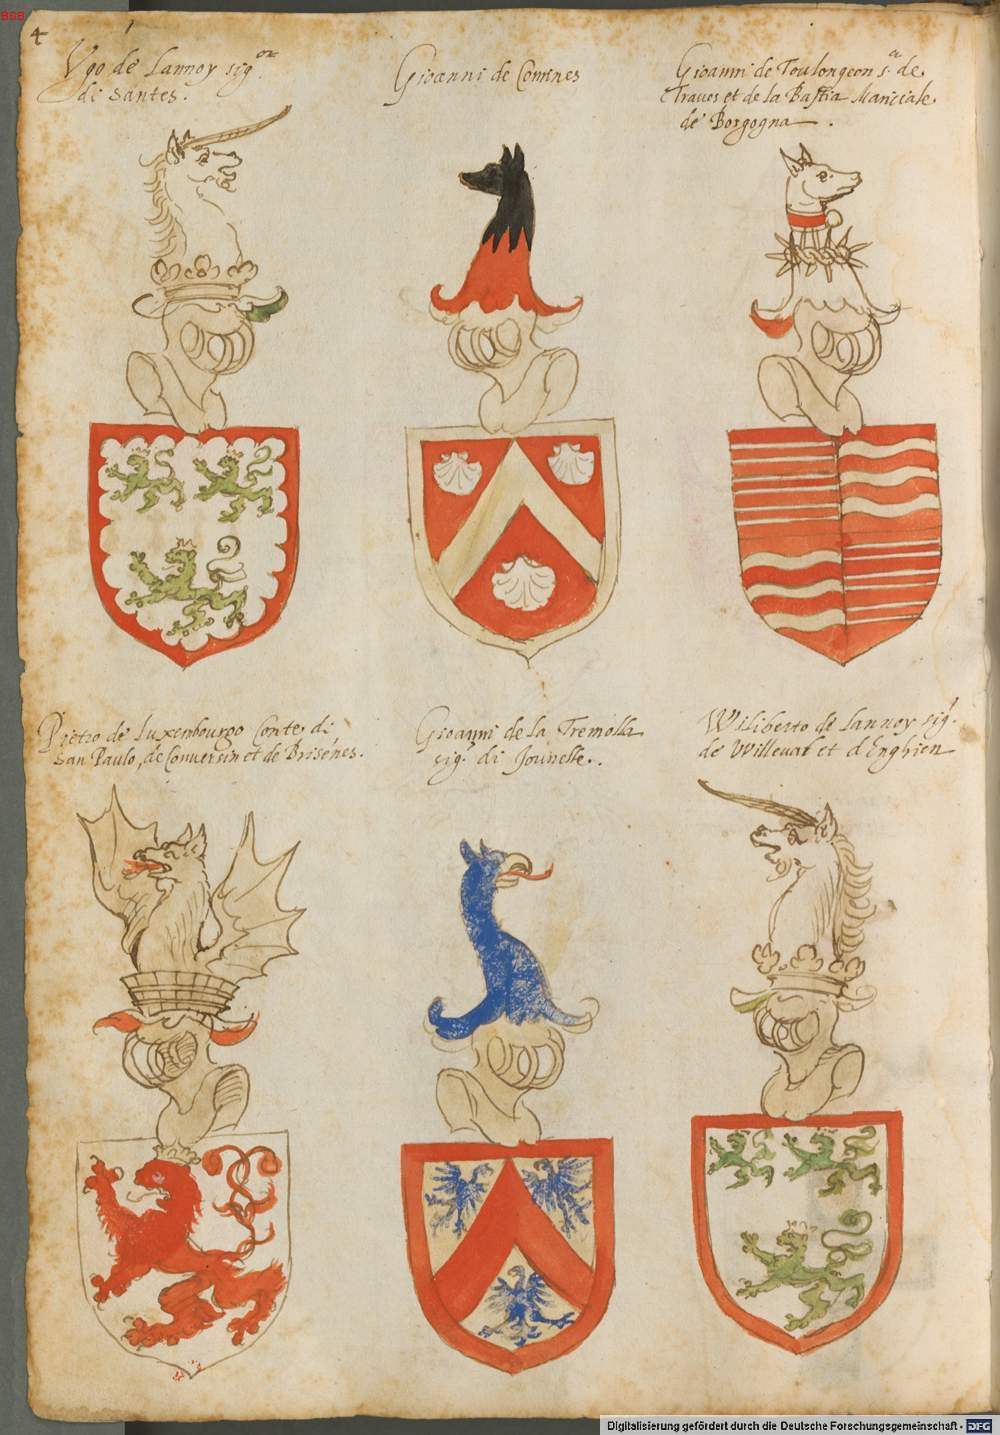 BSB
4
Ugo de Lannoy sig.or
di Santes.
Gioanni de Comines
Gioanni de Toulongeon s.r de
Traves et de la Bastia Mariciale
de Borgogna
Pietro de Luxenbourgo Conte di
San Paulo, de Conversin et de Brisenes.
Gioanni de la Tremolla
sig.r di Jounelle.
Wiliberto de Lannoy sig.r
de Willeval et d'Enghien
Digitalisierung gefördert durch die Deutsche Forschungsgemeinschaft - DFG